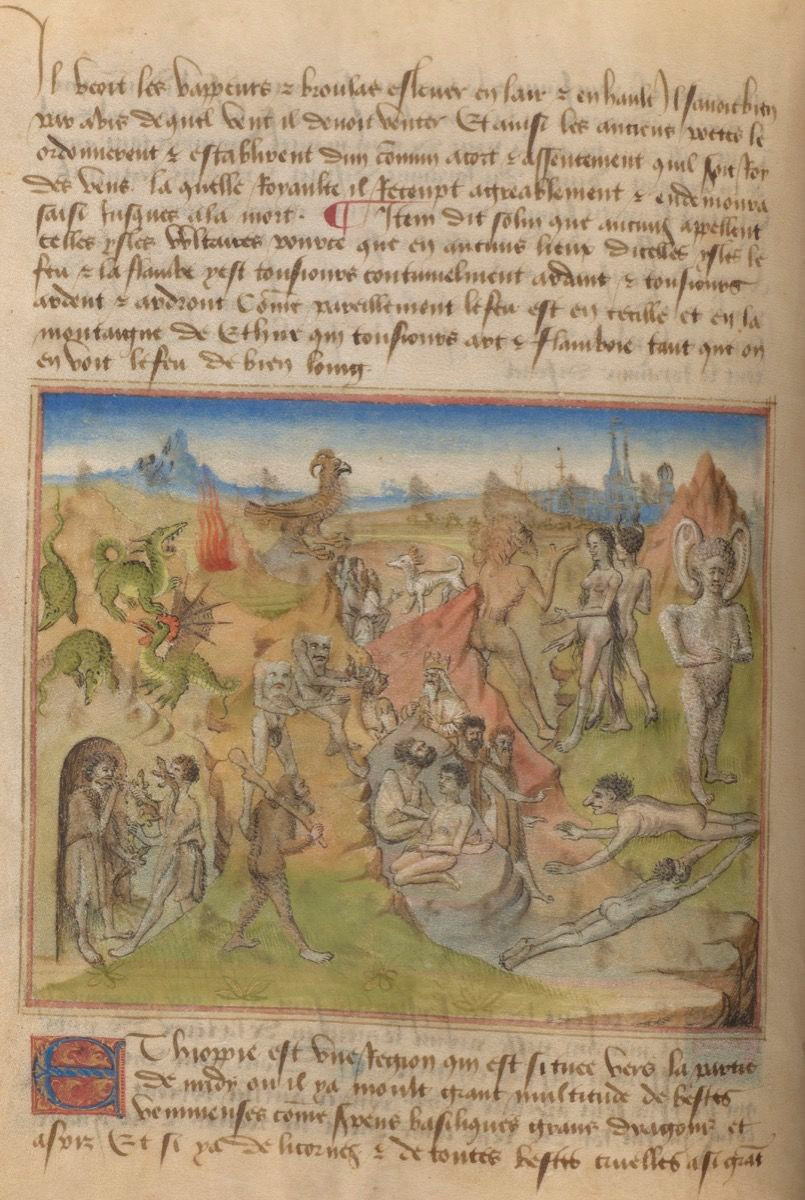 Il veoit les vappeurs ⁊ broulas eslever en lair ⁊ en hault Il savoit bien
par avis de quel vent il devoit venter Et ainsi les anciens poetes le
ordonnerent ⁊ establirent dun comun acort ⁊ assentement quil soit Roy
des vens. la quelle Royaulte il Receupt agreablement ⁊ en demoura
saisi jusques a la mort. ¶ Item dit solin que aucuns appellent
celles ysles Vlcaires pource que en aucuns lieux dicelles ysles le
feu ⁊ la flambe yest tousiours continuelment ardant ⁊ tousiours
ardent ⁊ ardront Come pareillement le feu est en cecille et en la
montaigne de Ethne qui tousiours art ⁊ flamboie tant que on
en voit le feu de bien loing
Ethioppie est vne Region qui est situee vers la partie
de midy ou il ya moult grant multitude de bestes
venimeuses come serpens basiliques grans dragons et
aspiz Et si ya de licornes ⁊ de toutes bestes cruelles a si grāt